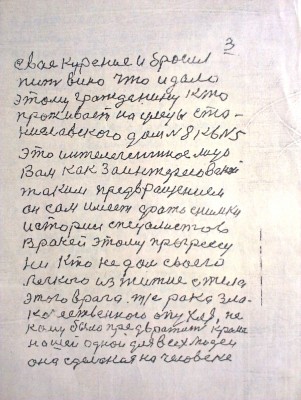 3
свае курение и бросил
пит вино что и дало
этому гражданину кто
проживает на улецы ста-
ниславского дом N 8 кв N5
это интелегентное лицо
Вам как заинтересованой
таким предвращением
он сам имеет драть снимки
истории специалистов
врачей этому прогрессу
ни кто не дал своего
легкого из тела
этого врага. же рака зло-
качественного опухля, не
кому было предвратит кроме
нашей одной для всех людей
она сделаная на человеке